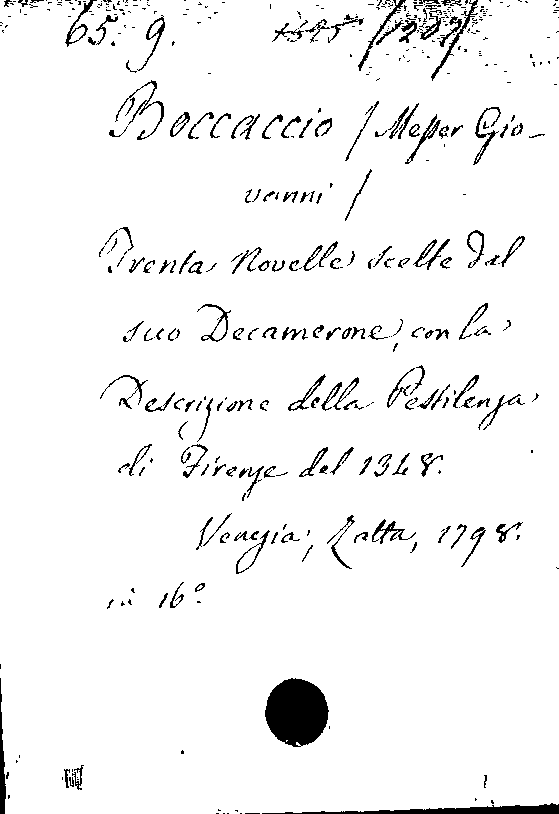 65. 9. 1545 (207)
Boccaccio / Messer Gio-
vanni /
Trenta Novelle scelte dal
suo Decamerone, con la
Descrizione della Pestilenza
di Firenze del 1348.
Venezia, Zatta, 1798.
in 16º.